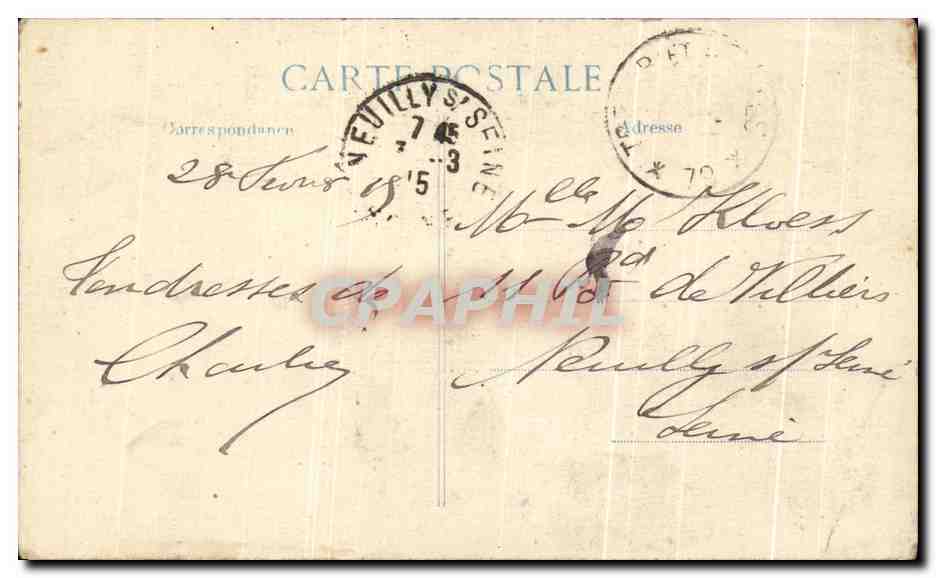 CARTE POSTALE
Correspondance
Adresse
NEUILLY S/ SEINE
7 45
3 -3
15
TRESOR ET
* 70 *
28 Févr 1915
Tendresses de
Charley
Mlle M Kloess
11 Bd de Villiers
Neuilly s/ Seine
Seine
CPAPHIL